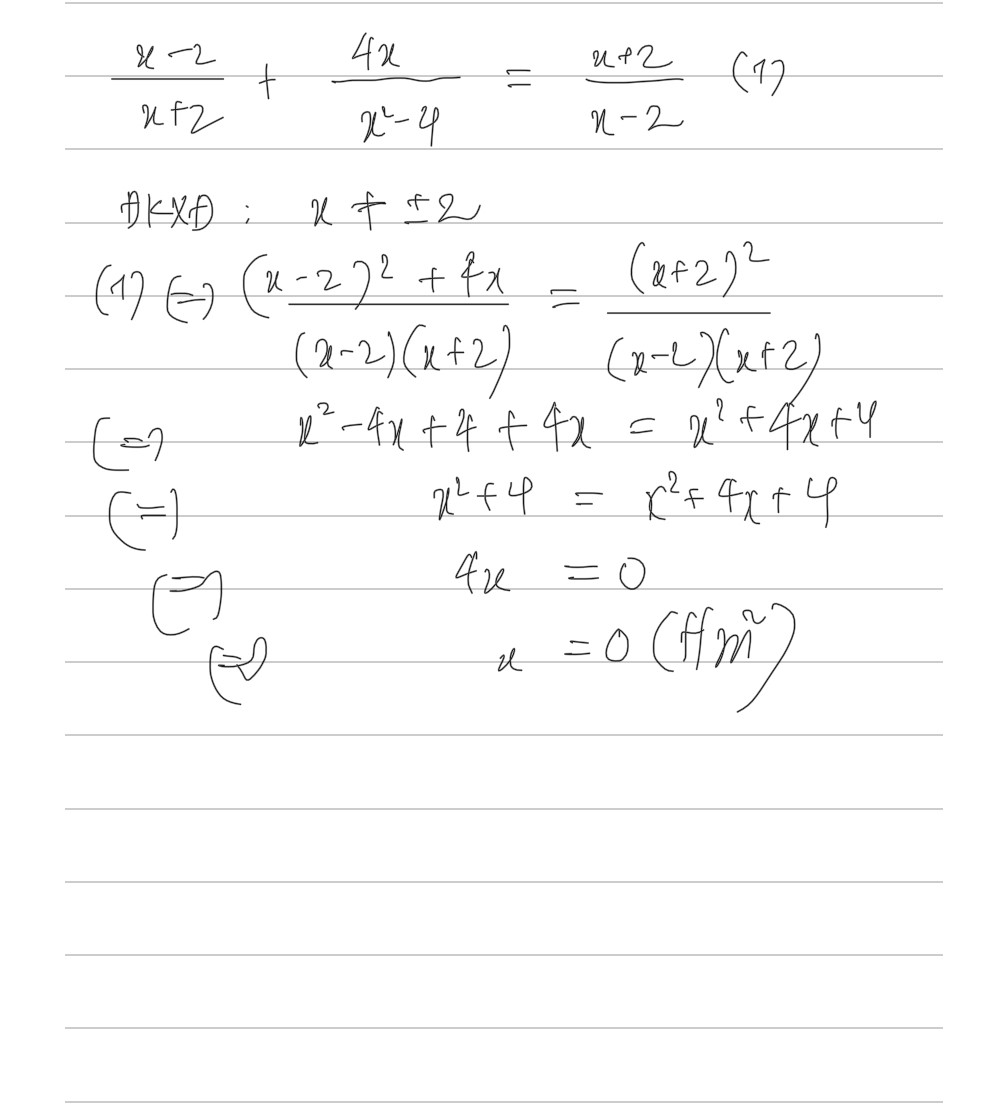 x-2/x+2 + 4x/x²-4 = x+2/x-2 (1)
ĐKXĐ: x ≠ ±2
(1) (=) (x-2)² + 4x/(x-2)(x+2) = (x+2)²/(x-2)(x+2)
(=) x² - 4x + 4 + 4x = x² + 4x + 4
(=) x² + 4 = x² + 4x + 4
(=) 4x = 0
(=) x = 0